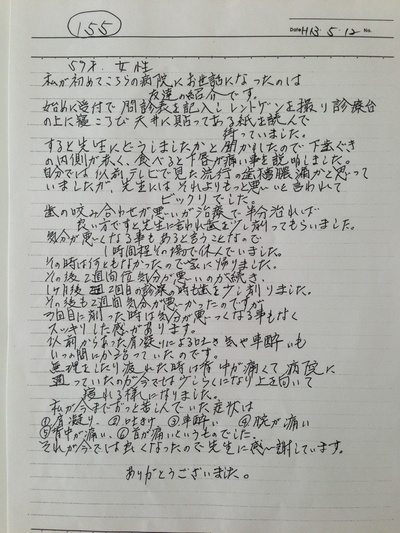 155
Date H13 5・12 No.
57才. 女性
私が初めてこちらの病院にお世話になったのは
友達の紹介です。
始めに受付で問診表を記入しレントゲンを撮り診療台
の上に寝ころび天井に貼ってある紙を読んで
待っていました。
すると先生にどうしましたかと聞かれたので下歯ぐき
の内側が赤く、食べると下唇が痛い事を説明しました。
自分では以前テレビで見た流行の歯槽膿漏かと思って
いましたが、先生にはそれよりもっと悪いと言われて
ビックリでした。
歯の咬み合わせが悪いが治療で半分治れば
良い方ですと先生に言われ歯を少し削ってもらいました。
気分が悪くなる事もあると言うことなので
1時間程その場で休んでいました。
その時は何ともなかったので家に帰りました。
その後2週間位気分が悪いのが続き
1ヶ月後2回目の診療の時も歯を少し削りました。
その後も2週間気分が悪かったのですが
3回目に削った時は気分が悪くなる事もなく
スッキリした感があります。
以前からあった肩凝りによる吐き気や車酔いも
いつの間にか治っていたのです。
無理をしたり疲れた時は背中が痛くて病院に
通っていたのが今では少しらくになり上を向いて
寝れる様になりました。
私が今までずっと苦しんでいた症状は
①肩凝り、②吐き気 ③車酔い ④腕が痛い
⑤背中が痛い、⑥首が痛いというものでした。
それが今では無くなったので先生に感謝しています。
ありがとうございました。